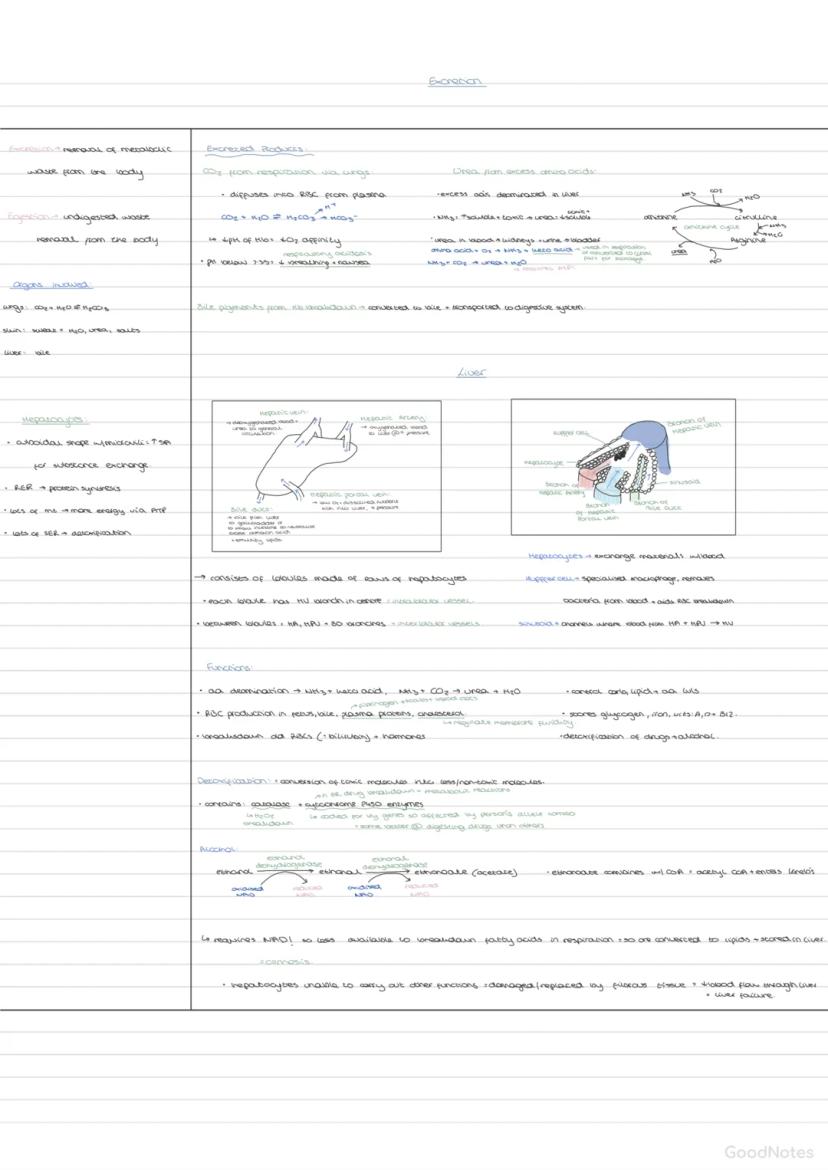 Excretion
Excretion → removal of metabolic
waste from the body
Egestion → undigested waste
removal from the body
Organs involved:
lungs: CO₂ + H₂O ⇌ H₂CO₃
skin: sweat = H₂O, urea, salts
liver: bile
Excreted Products:
CO₂ from respiration via lungs:
• diffuses into RBC from plasma
CO₂ + H₂O ⇌ H₂CO₃ → HCO₃⁻
H⁺
↳ ↓pH of Hb = ↓O₂ affinity
respiratory acidosis
• pH below 7.35 = ↓ breathing + nausea
Urea from excess amino acids:
• excess aa's deaminated in liver
• NH₃: ↑soluble + toxic → urea: ↓soluble
toxic +
• urea in blood → kidneys → urine → bladder
amino acid + O₂ → NH₃ + keto acid
NH₃ + CO₂ → urea + H₂O
↳ requires ATP
NH₃
CO₂
H₂O
ornithine
citrulline
ornithine cycle
NH₃
H₂O
Arginine
urea
H₂O
Bile pigments from Hb breakdown → converted to bile + transported to digestive system.
Liver
Hepatocytes:
• cuboidal shape w/ microvilli = ↑ SA
for substance exchange
• RER → protein synthesis
• lots of mt → more energy via ATP
• lots of SER → detoxification
Hepatic vein:
→ deoxygenated blood +
urea to general
circulation
Hepatic Artery:
→ oxygenated blood
Hepatic portal vein:
Bile duct:
→ bile from liver
to gallbladder
+ emulsify lipids
Kupffer cell
Hepatocyte
Branch of
Hepatic vein
Branch of
Hepatic Artery
sinusoid
Branch
of Hepatic
Portal vein
Branch of
Bile duct
→ consists of lobules made of rows of hepatocytes
• each lobule has HV branch in centre = intralobular vessel.
• between lobules = HA, HPV + BD branches = interlobular vessels.
Hepatocytes → exchange materials w/ blood
Kupffer cell → specialised macrophage, removes
bacteria from blood + aids RBC breakdown
sinusoid → channels where blood from HA + HPV → HV
Functions:
• aa deamination → NH₃ + keto acid, NH₃ + CO₂ → urea + H₂O
• RBC production in fetus, bile, plasma proteins, cholesterol.
↳ regulate membrane fluidity
• breakdown old RBCs (∴ bilirubin) + hormones
• control carb, lipid + aa lvls
• stores glycogen, iron, vits: A, D + B12.
• detoxification of drugs + alcohol.
Detoxification: • conversion of toxic molecules into less/non-toxic molecules.
→ in ER drug breakdown + metabolic reactions
• contains: catalase + cytochrome P450 enzymes
↳ H₂O₂
breakdown
↳ coded for by genes so affected by person's allele combo
= some better @ digesting drugs than others
Alcohol:
ethanol
dehydrogenase
ethanal
dehydrogenase
ethanol → ethanal → ethanoate (acetate)
oxidised
NAD
reduced
NAD
oxidised
NAD
reduced
NAD
• ethanoate combines w/ CoA = acetyl CoA + enters Krebs
↳ requires NAD! so less available to breakdown fatty acids in respiration = so are converted to lipids + stored in liver.
• hepatocytes unable to carry out other functions = damaged/replaced by fibrous tissue = ↓blood flow through liver
+ liver failure.
GoodNotes